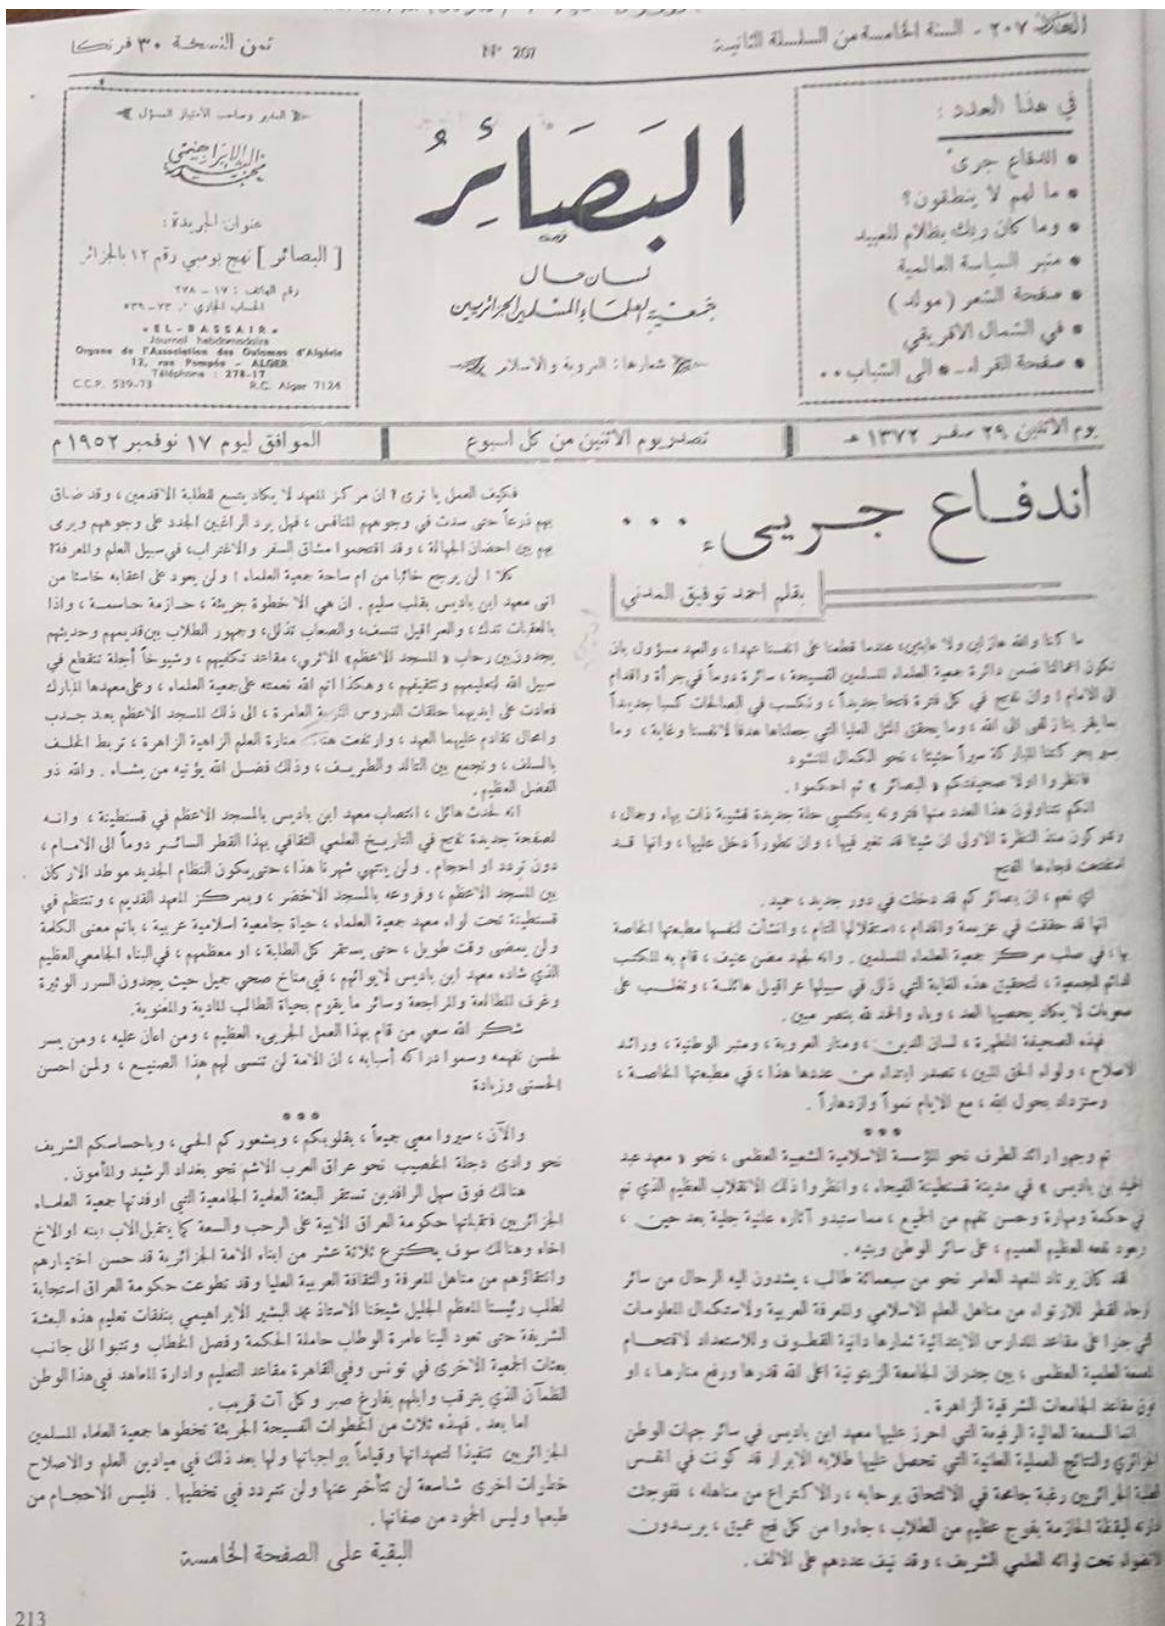 العدد ٢٠٧ - السنة الخامسة من السلسلة الثانية
Nº 207
ثمن النسخة ٣٠ فرنكا
في هذا العدد :
• اندفاع جرىء
• ما لهم لا ينطقون؟
• وما كان ربك بظلام للعبيد
• منبر السياسة العالمية
• صفحة الشعر ( مولد )
• في الشمال الافريقي
• صفحة القراء - • الى الشباب ••
البَصَائِرُ
لسان حال
جمعية العلماء المسلمين الجزائريين
شعارها: العروبة والاسلام
المدير وصاحب الامتياز المسؤل
محمد البشير الابراهيمي
عنوان الجريدة :
[ البصائر ] نهج بومبي رقم ١٢ بالجزائر
رقم الهاتف : ١٧ - ٢٧٨
الحساب الجاري : ٧٣ - ٥٣٩
«EL-BASSAIR»
Journal hebdomadaire
Organe de l'Association des Oulamas d'Algérie
12, rue Pompée - ALGER
Téléphone : 278-17
C.C.P. 539-73 R.C. Alger 7124
يوم الاثنين ٢٩ صفر ١٣٧٢ هـ
تصدر يوم الاثنين من كل اسبوع
الموافق ليوم ١٧ نوفمبر ١٩٥٢ م
اندفاع جريىء ...
بقلم احمد توفيق المدني
ما كنا والله هازلين ولا عابثين، عندما قطعنا على انفسنا عهدا ، والعهد مسؤول بان
تكون اعمالنا ضمن دائرة جمعية العلماء المسلمين الفسيحة ، سائرة دوماً في جرأة واقدام
الى الامام ؛ وان نفتح في كل فترة فتحا جديداً ، ونكسب في الصالحات كسبا جديداً
بما يقربنا زلفى الى الله ، وما يحقق المثل العليا التي جعلناها هدفا لانفسنا وغاية ، وما
يسير بحركتنا المباركة سيراً حثيثا ، نحو الكمال المنشود
فانظروا اولا صحيفتكم « البصائر » ثم احكموا .
انكم تتناولون هذا العدد منها فترونه يكتسي حلة جديدة قشيبة ذات بهاء وجمال ،
وتدركون منذ النظرة الاولى ان شيئا قد تغير فيها ، وان تطوراً دخل عليها ، وانها قد
استفتحت فجاءها الفتح
اي نعم ، ان بصائركم قد دخلت في دور جديد ، حميد .
انها قد حققت في عزيمة واقدام ، استقلالها التام ، وانشأت لنفسها مطبعتها الخاصة
بها ، في صلب مركز جمعية العلماء المسلمين . وانه لجهد مضن عنيف ، قام به المكتب
الدائم للجمعية ، لتحقيق هذه الغاية التي ذلل في سبيلها عراقيل هائلة ، وتغلب على
صعوبات لا يكاد يحصيها العد ، وباء والحمد لله بنصر مبين .
فهذه الصحيفة المطهرة ، لسان الدين ، ومنار العروبة ، ومنبر الوطنية ، ورائد
الاصلاح ، ولواء الحق المبين ، تصدر ابتداء من عددها هذا ، في مطبعتها الخاصة ،
وستزداد بحول الله ، مع الايام نمواً وازدهاراً .
•••
ثم وجهوا رائد الطرف نحو المؤسسة الاسلامية الشعبية العظمى ، نحو « معهد عبد
الحميد بن باديس » في مدينة قسنطينة الفيحاء ، وانظروا ذلك الانقلاب العظيم الذي تم
في حكمة ومهارة وحسن تفهم من الجميع ، مما ستبدو آثاره علنية جلية بعد حين ،
ويعود نفعه العظيم العميم ، على سائر الوطن وبنيه .
لقد كان يرتاد المعهد العامر نحو من سبعمائة طالب ، يشدون اليه الرحال من سائر
ارجاء القطر للارتواء من مناهل العلم الاسلامي والمعرفة العربية ولاستكمال المعلومات
التي جنوا على مقاعد المدارس الابتدائية ثمارها دانية القطوف وللاستعداد لاقتحام
المعمعة العلمية العظمى ، بين جدران الجامعة الزيتونية اعلى الله قدرها ورفع منارها ، او
فوق مقاعد الجامعات الشرقية الزاهرة .
انما السمعة العالية الرفيعة التي احرز عليها معهد ابن باديس في سائر جهات الوطن
الجزائري والنتائج العملية العالية التي تحصل عليها طلابه الابرار قد كونت في انفس
الطلبة الجزائريين رغبة جامحة في الالتحاق برحابه ، والاكتراع من مناهله ، ففوجئت
ادارته اليقظة الحازمة بفوج عظيم من الطلاب ، جاءوا من كل فج عميق ، يريدون
الانضواء تحت لوائه العلمي الشريف ، وقد نيف عددهم على الالف .
فكيف العمل يا ترى ؟ ان مركز المعهد لا يكاد يتسع للطلبة الاقدمين ، وقد ضاق
بهم ذرعاً حتى سدت في وجوههم المنافس ، فهل يرد الراغبين الجدد على وجوههم ويرمى
بهم بين احضان الجهالة ، وقد اقتحموا مشاق السفر والاغتراب، في سبيل العلم والمعرفة؟
كلا ! لن يرجع خائبا من ام ساحة جمعية العلماء ؛ ولن يعود على اعقابه خاسئا من
اتى معهد ابن باديس بقلب سليم . ان هي الا خطوة جريئة ، حازمة حاسمة ، واذا
بالعقبات تدك ، والعراقيل تنسف، والصعاب تذلل، وجمهور الطلاب بين قديمهم وحديثهم
يجدون بين رحاب « المسجد الاعظم» الاثري، مقاعد تكفيهم ، وشيوخاً أجلة تنقطع في
سبيل الله لتعليمهم وتثقيفهم ، وهكذا اتم الله نعمته على جمعية العلماء ، وعلى معهدها المبارك
فعادت على ايديهما حلقات الدروس العامرة ، الى ذلك المسجد الاعظم بعد جدب
وامحال تقادم عليهما العهد ، وارتفعت هناك منارة العلم الزاهية الزاهرة ، تربط الخلف
بالسلف ، وتجمع بين التالد والطريف ، وذلك فضل الله يؤتيه من يشاء . والله ذو
الفضل العظيم .
انه لحدث هائل ، انتصاب معهد ابن باديس بالمسجد الاعظم في قسنطينة ، وانه
لصفحة جديدة تفتح في التاريخ العلمي الثقافي بهذا القطر السائر دوماً الى الامام ،
دون تردد او احجام . ولن ينتهي شهرنا هذا ، حتى يكون النظام الجديد موطد الاركان
بين المسجد الاعظم ، وفروعه بالمسجد الاخضر ، وبمركز المعهد القديم ، وتنتظم في
قسنطينة تحت لواء معهد جمعية العلماء ، حياة جامعية اسلامية عربية ، باتم معنى الكلمة
ولن يمضى وقت طويل ، حتى يستقر كل الطلبة ، او معظمهم ، في البناء الجامعي العظيم
الذي شاده معهد ابن باديس لايوائهم ، في مناخ صحي جميل حيث يجدون السرر الوثيرة
وغرف المطالعة والمراجعة وسائر ما يقوم بحياة الطالب المادية والمعنوية.
شكر الله سعي من قام بهذا العمل الجريىء العظيم ، ومن اعان عليه ، ومن يسر
لحسن تفهمه وسمو ادراكه أسبابه ، ان الامة لن تنسى لهم هذا الصنيع ، ولمن احسن
الحسنى وزيادة
•••
والآن ، سيروا معي جميعاً ، بقلوبكم ، وبشعوركم الحي ، وباحساسكم الشريف
نحو وادى دجلة الخصيب نحو عراق العرب الاشم نحو بغداد الرشيد والمأمون .
هنالك فوق سهل الرافدين تستقر البعثة العلمية الجامعية التي اوفدتها جمعية العلماء
الجزائريين فتقبلتها حكومة العراق الابية على الرحب والسعة كما يتقبل الاب ابنه او الاخ
اخاه وهنالك سوف يكترع ثلاثة عشر من ابناء الامة الجزائرية قد حسن اختيارهم
وانتقاؤهم من مناهل المعرفة والثقافة العربية العليا وقد تطوعت حكومة العراق استجابة
لطلب رئيسنا المعظم الجليل شيخنا الاستاذ محمد البشير الابراهيمي بنفقات تعليم هذه البعثة
الشريفة حتى تعود الينا عامرة الوطاب حاملة الحكمة وفصل الخطاب وتتبوا الى جانب
بعثات الجمعية الاخرى في تونس وفي القاهرة مقاعد التعليم وادارة المعاهد في هذا الوطن
الظمآن الذي يترقب وابلهم بفارغ صبر وكل آت قريب .
اما بعد . فهذه ثلاث من الخطوات الفسيحة الجريئة تخطوها جمعية العلماء المسلمين
الجزائريين تنفيذا لتعهداتها وقياماً بواجباتها ولها بعد ذلك في ميادين العلم والاصلاح
خطوات اخرى شاسعة لن تتأخر عنها ولن تتردد في تخطيها . فليس الاحجام من
طبعها وليس الجمود من صفاتها .
البقية على الصفحة الخامسة
213